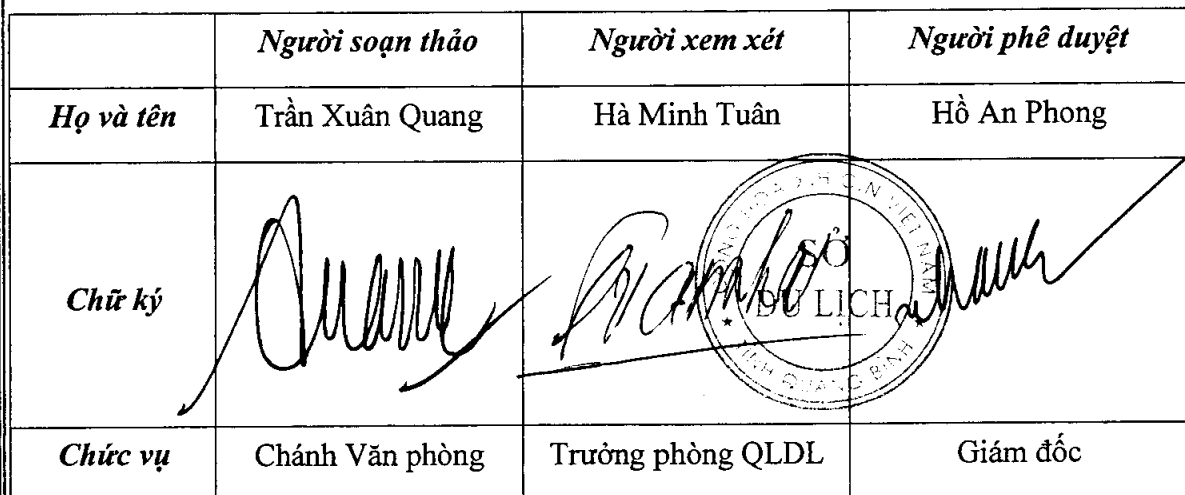 Người soạn thảo Người xem xét Người phê duyệt
Họ và tên Trần Xuân Quang Hà Minh Tuân Hồ An Phong
Chữ ký
SỞ
DU LỊCH
VIỆT NAM
QUẢNG BÌNH
Chức vụ Chánh Văn phòng Trưởng phòng QLDL Giám đốc